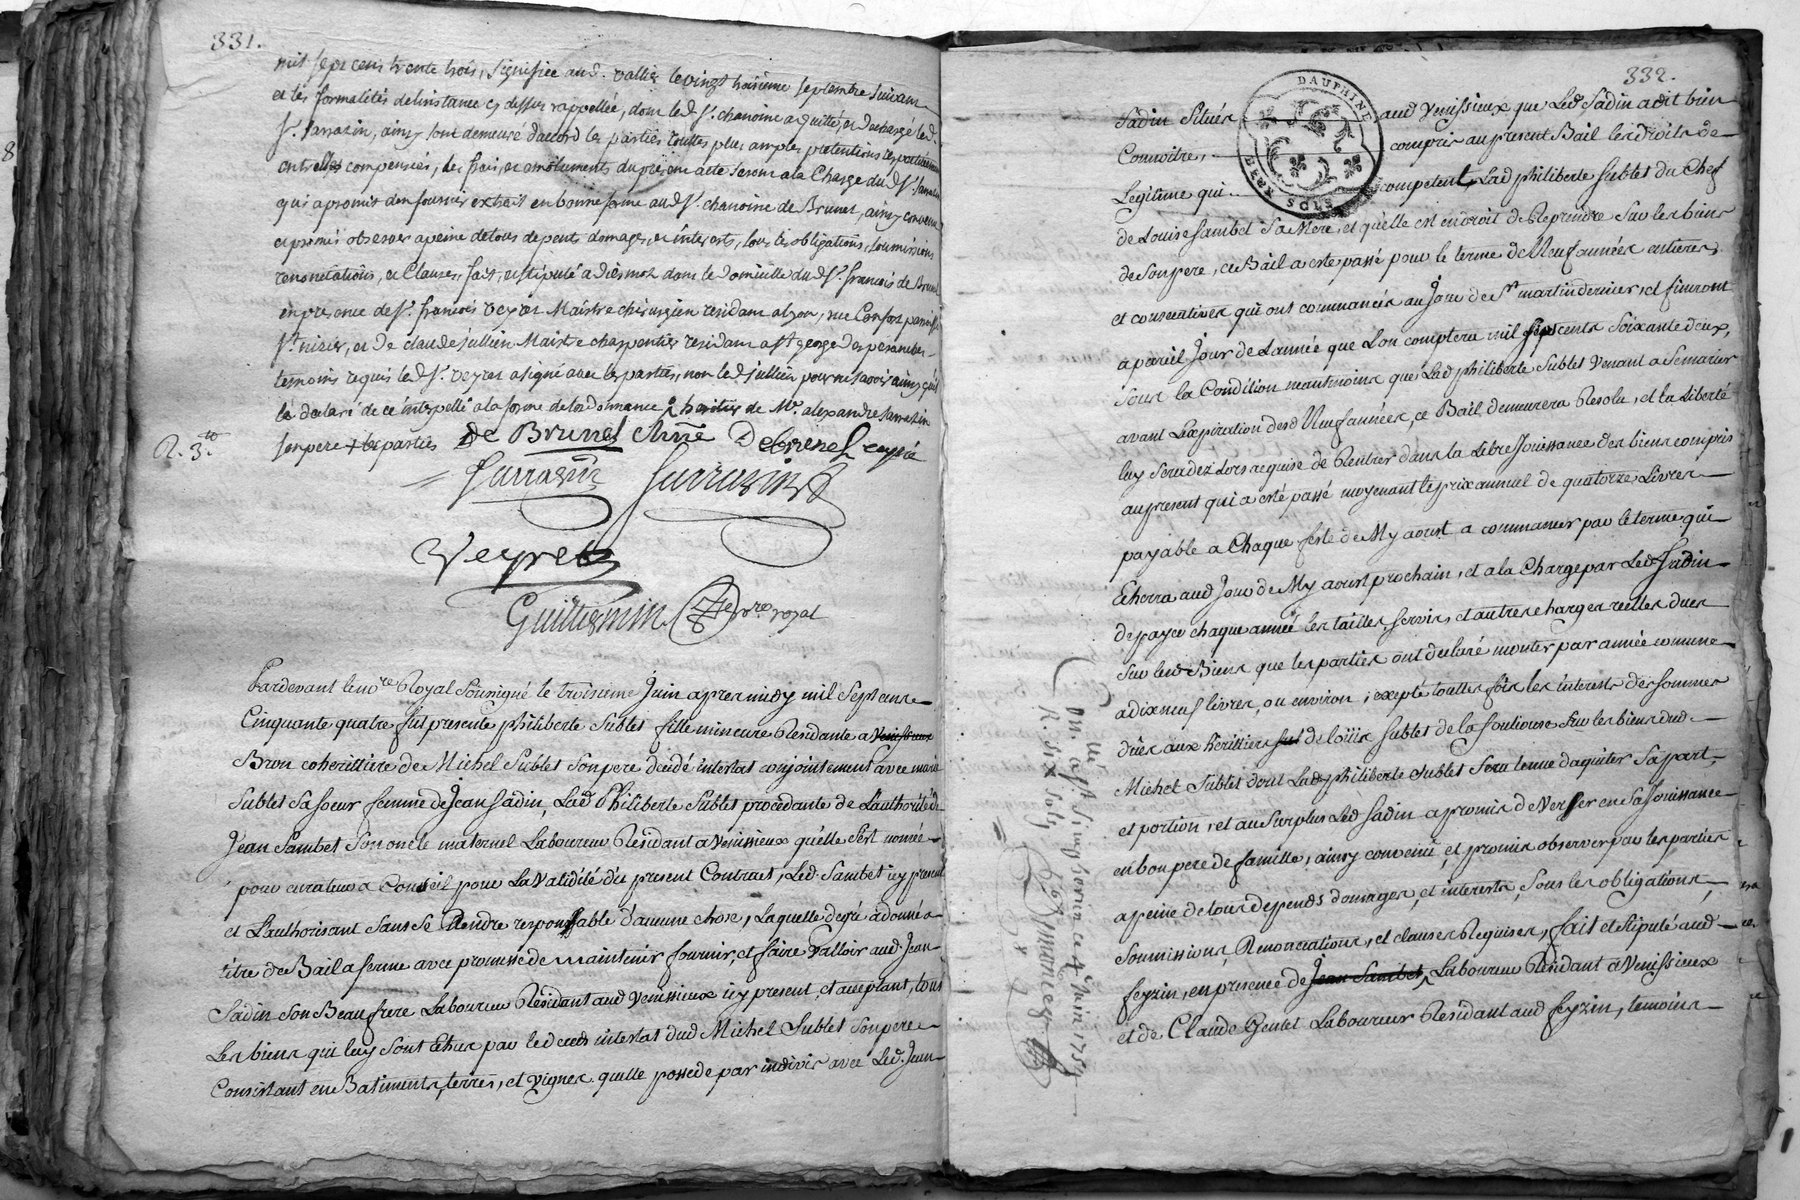 331.
mil sept cens trente trois, signiffiée aud. vallier le vingt huisième septembre suivan
et les formalités de linstance cy dessus rappellée, dont led Sr. chanoine a quitté, et dechargé led
Sr. Sarrazin, ainsy sont demeuré daccord les parties touttes plus amples pretentions respectivement
entrelles compensées, les frais, et emoluments du present acte seront a la Charge dud Sr. Sarrazin
qui a promis den fournir extrait en bonne forme aud Sr. chanoine de Brunel, ainsy convenu
et promis observer a peine de tous depents domages, et interests, sous les obligations, soumissions
renontiations, et Clauses, fait, et stipulé a Diesmoz dans le domicille dud Sr. françois de Brunel
en presence de Sr. françois veyret Maistre chirurgien residant a lyon, rue Confort paroisse
St. nizier, et de claude jullien Maistre charpentier residant a St george desperanche
temoins requis led Sr. veyret a signé avec les parties, non led jullien pour ne scavoir ainsy quil
la declaré de ce interpellé a la forme de lordonnance heritier de Mr. alexandre Sarrazin
son pere + les parties
R. 3.to
De Brunel Chne De brunel
Sarrazin Sarrazin
Veyret
Guilliermin nre royal
Pardevant le nore Royal Soussigné le troisieme Juin apres midy mil Sept cens
Cinquante quatre fut presente philiberte Sublet fille mineure Residante a Venissieux
Bron coherittiere de Michel Sublet Son pere decedé intestat conjointement avec marie
Sublet Sa Soeur femme de Jean Sadin, Lad Philiberte Sublet procedante de L'authorité de
Jean Sambet Son oncle maternel Laboureur Residant a Venissieux qu'elle S'est nomée
pour curateur a Conseil pour La Validité du present Contract, Led. Sambet icy present
et L'authorisant Sans Se Rendre responssable d'aucune chose, Laquelle de gré a donné a
titre de Bail a ferme avec promesse de maintenir fournir, et faire Valloir aud Jean
Sadin Son Beaufrere Laboureur Residant aud Venissieux icy present, et acceptant, tous
Les biens qui luy Sont Echus par le deceds intestat dud Michel Sublet Son pere
Consistant en Batiments, terres, et vignes qu'elle possede par indivis avec Led. Jean
332.
DAUPHINE
Sadin Situés aud Venissieux que Led Sadin a dit bien
Connoitre, compris au present Bail les droits de
Legitime qui competent Lad philiberte Sublet du Chef
de Louise Sambet Sa Mere, et qu'elle est en droit de Reprendre Sur les biens
de Son pere, ce Bail a esté passé pour le terme de Neuf années entieres
et consecutives qui ont commancés au Jour de St martin dernier, et finiront
a pareil Jour de L'année que L'on comptera mil sept cents Soixante deux,
Sous la Condition neantmoins que Lad philiberte Sublet Venant a Se marier
avant L'expiration desd Neuf années, ce Bail demeurera Resolu, et la Liberté
luy Sera dez Lors acquise de Rentrer dans la Libre Jouissance des biens compris
au present qui a esté passé moyenant le prix annuel de quatorze Livres
payable a Chaque feste de My aoust a commancer par le terme qui
Echerra aud Jour de My aoust prochain, et a la Charge par Led Sadin
de payer chaque année les tailles servis, et autres charges reelles dues
Sur lesd Biens que les parties ont declaré monter par année commune
a dix neuf livres, ou environ, excepté touttes fois les interests des sommes
dües aux herittiers de loüis Sublet de la Soulouse Sur les biens dud
Michel Sublet dont Lad philiberte Sublet Sera tenue d'aquiter Sa part
et portion, et au Surplus Led Sadin a promis de Verser en Sa Jouissance
en bon pere de famille, ainsy convenü, et promis observer par les parties
a peine de tous depends domages, et interests, Sous les obligations,
Soumissions, Renonciations, et clauses Requises, fait et Stipulé aud
feyzin, en presence de Jean Sambet, Laboureur Residant a Venissieux
et de Claude Gentet Laboureur Residant aud feyzin, temoins
Con.llé à St Simphorien ce 4 Juin 1754
R. six sols